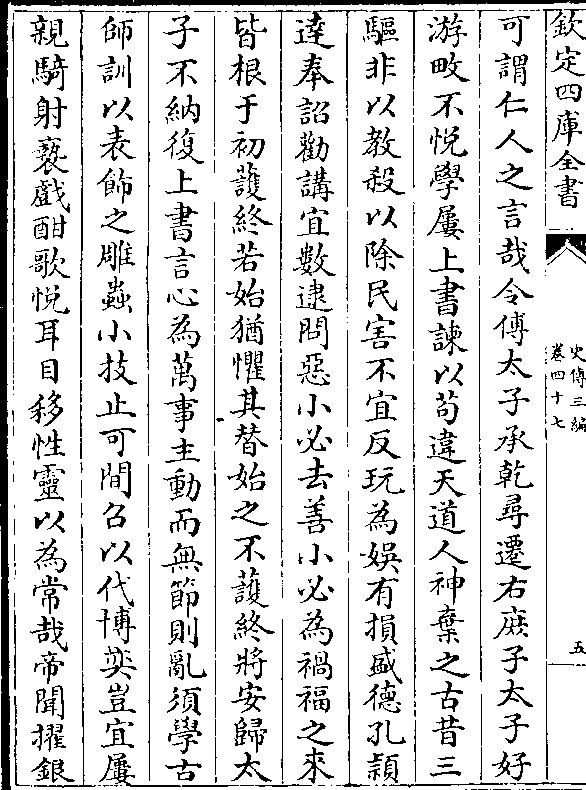 欽定四庫全書
史傳三編
卷四十七
五
可謂仁人之言哉令傅太子承乾尋遷右庶子太子好
游畋不悦學屢上書諫以茍違天道人神棄之古昔三
驅非以教殺以除民害不宜反玩為娛有損盛德孔頴
達奉詔勸講宜數逮問惡小必去善小必為禍福之來
皆根于初䕶終若始猶懼其替始之不䕶終將安歸太
子不納復上書言心為萬事主動而無節則亂須學古
師訓以表飾之雕蟲小技止可間召以代博奕豈宜屢
親騎射褻戲酣歌悦耳目移性靈以為常哉帝聞擢銀